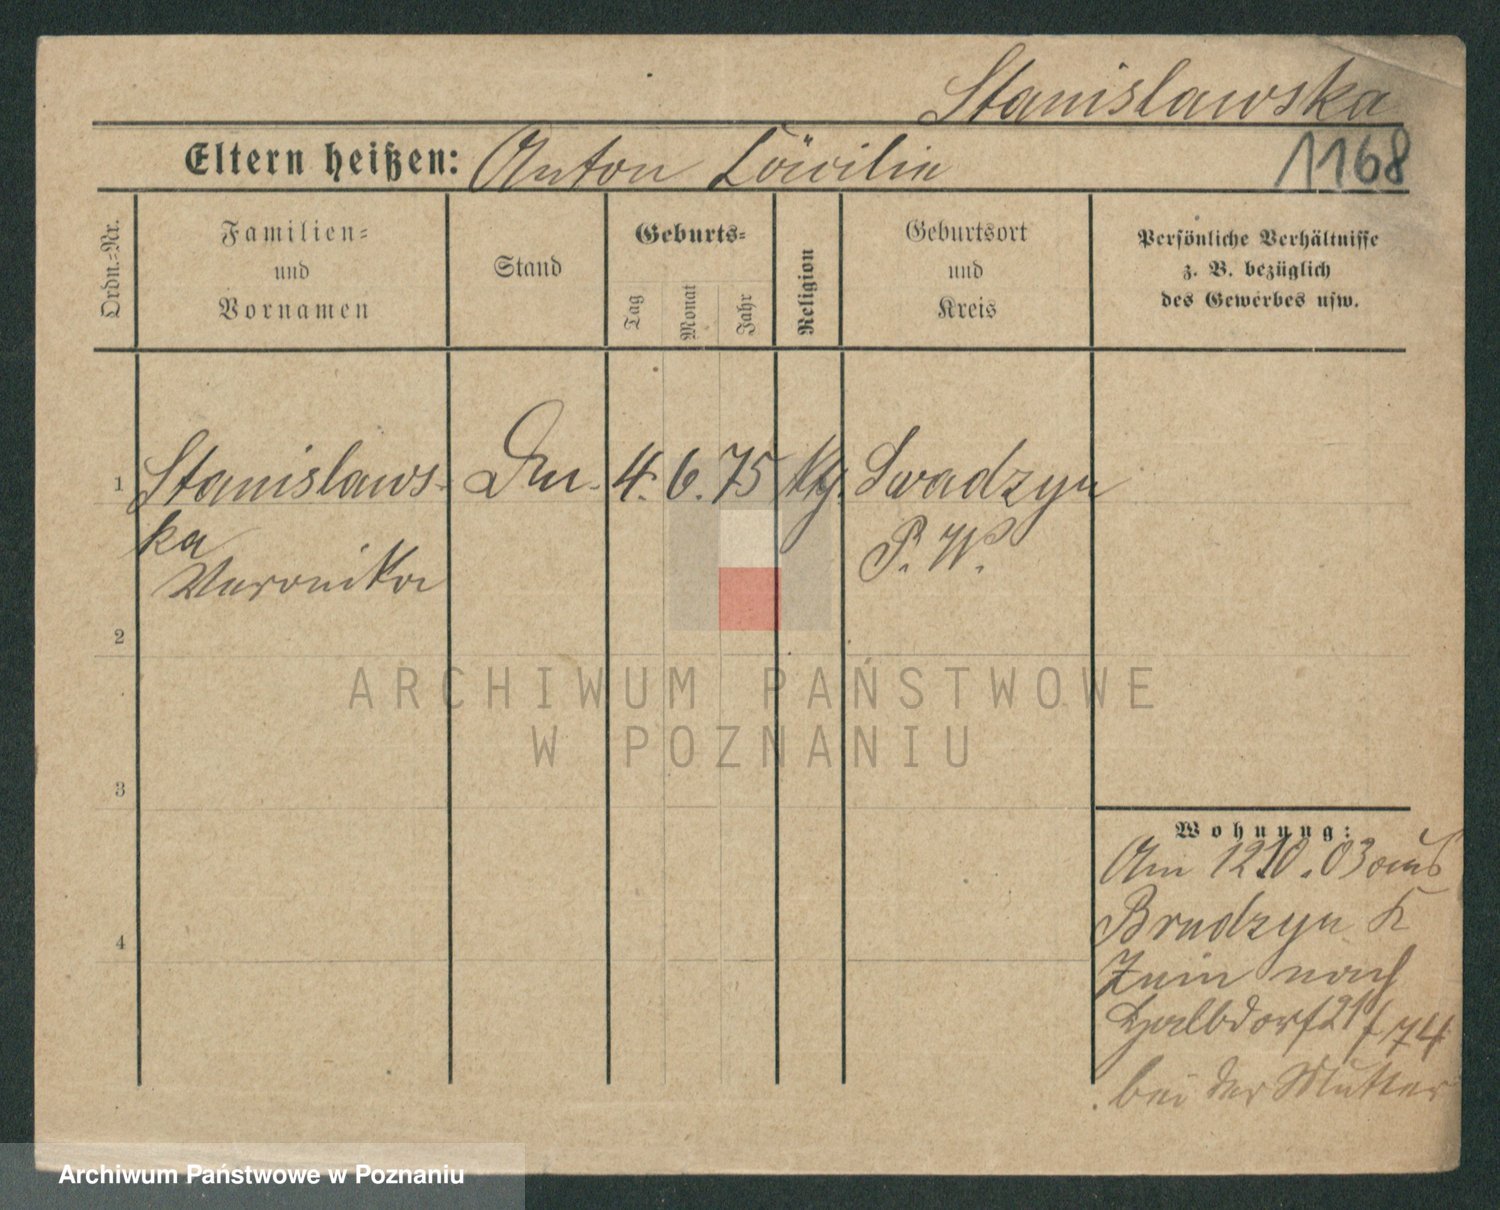 Stanislawska
Eltern heißen: Anton Cäcilie
1168
Ordn.=Nr.
Familien=
und
Vornamen
Stand
Geburts=
Tag
Monat
Jahr
Religion
Geburtsort
und
Kreis
Persönliche Verhältnisse
z. B. bezüglich
des Gewerbes usw.
1 Stanislaws- 4. 6. 75 Swadzyn
ka P. W.
Veronika
2
3
4
Wohnung:
Am 12 10. 03 aus
Brudzyn K
Znin nach
Halbdorf 21 / 74
bei der Mutter
ARCHIWUM PAŃSTWOWE
W POZNANIU
Archiwum Państwowe w Poznaniu